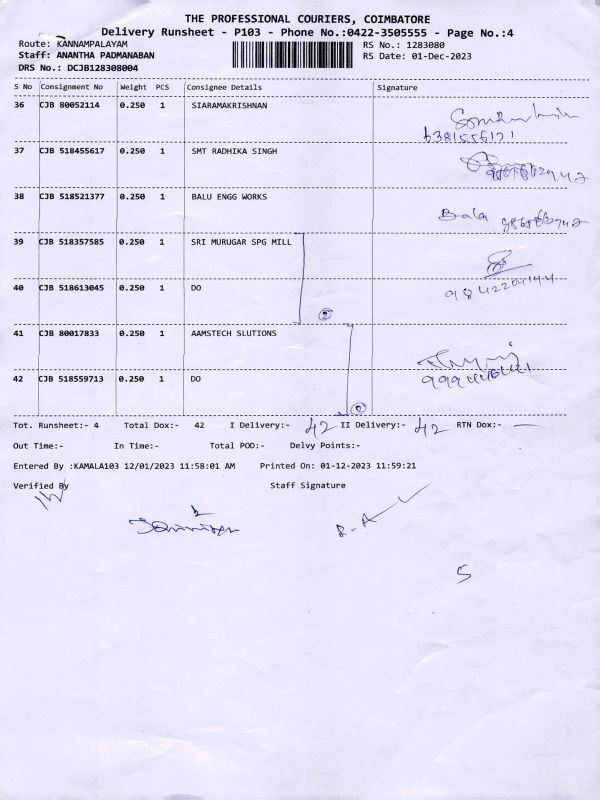 THE PROFESSIONAL COURIERS, COIMBATORE
Delivery Runsheet - P103 - Phone No.:0422-3505555 - Page No.:4
Route: KANNAMPALAYAM RS No.: 1283080
Staff: ANANTHA PADMANABAN RS Date: 01-Dec-2023
DRS No.: DCJB128308004
S No Consignment No Weight PCS Consignee Details Signature
36 CJB 80052114 0.250 1 SIARAMAKRISHNAN
6381556121
37 CJB 518455617 0.250 1 SMT RADHIKA SINGH
38 CJB 518521377 0.250 1 BALU ENGG WORKS
Bala
39 CJB 518357585 0.250 1 SRI MURUGAR SPG MILL
40 CJB 518613045 0.250 1 DO
2
41 CJB 80017833 0.250 1 AAMSTECH SLUTIONS
42 CJB 518559713 0.250 1 DO
2
Tot. Runsheet:- 4 Total Dox:- 42 I Delivery:- 42 II Delivery:- 42 RTN Dox:- —
Out Time:- In Time:- Total POD:- Delvy Points:-
Entered By :KAMALA103 12/01/2023 11:58:01 AM Printed On: 01-12-2023 11:59:21
Verified By Staff Signature
5